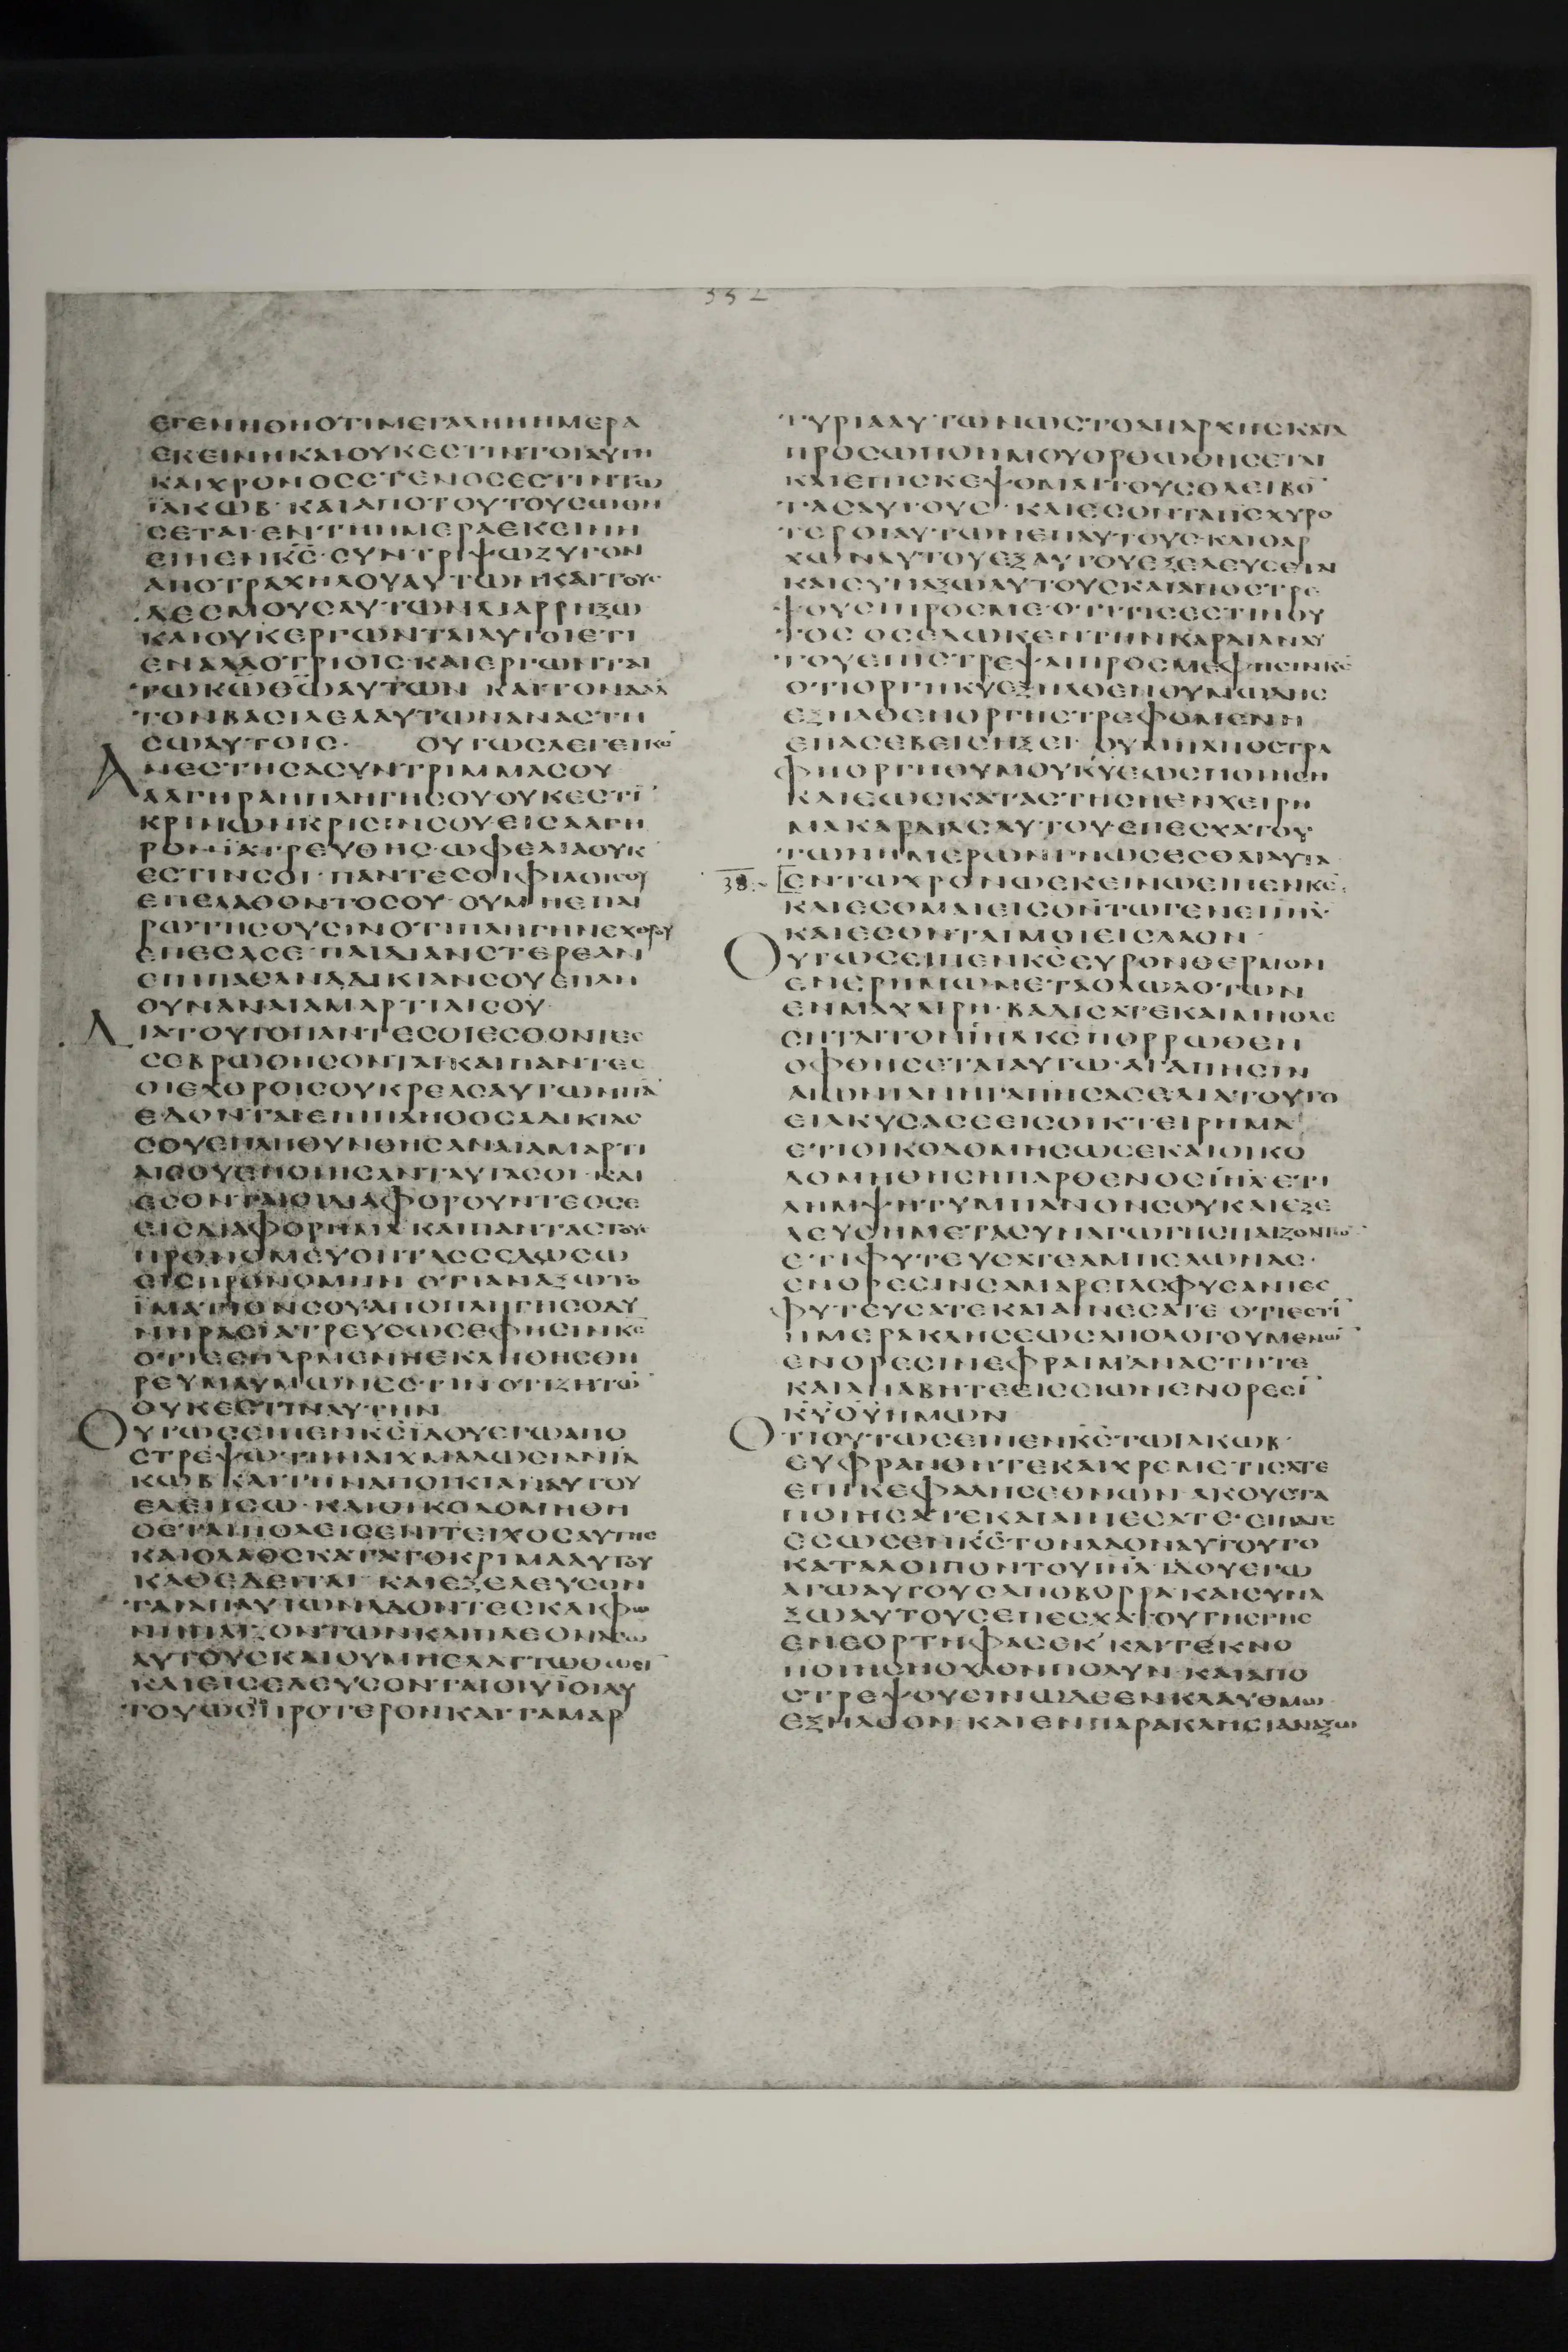 332
ΕΓΕΝΗΘΗΟΤΙΜΕΓΑΛΗΗΗΜΕΡΑ
ΕΚΕΙΝΗΚΑΙΟΥΚΕΣΤΙΝΤΟΙΑΥΤΗ
ΚΑΙΧΡΟΝΟΣΣΤΕΝΟΣΕΣΤΙΝΤΩ
ΪΑΚΩΒ· ΚΑΙΑΠΟΤΟΥΤΟΥΣΩΘΗ
ΣΕΤΑΙ· ΕΝΤΗΗΜΕΡΑΕΚΕΙΝΗ
ΕΙΠΕΝΚ̅Σ̅· ΣΥΝΤΡΙΨΩΖΥΓΟΝ
ΑΠΟΤΡΑΧΗΛΟΥΑΥΤΩΝΚΑΙΤΟΥΣ
ΔΕΣΜΟΥΣΑΥΤΩΝΔΙΑΡΡΗΞΩ
ΚΑΙΟΥΚΕΡΓΩΝΤΑΙΑΥΤΟΙΕΤΙ
ΕΝΑΛΛΟΤΡΙΟΙΣ·ΚΑΙΕΡΓΩΝΤΑΙ
ΤΩΚ̅Ω̅Θ̅Ω̅ΑΥΤΩΝ ΚΑΙΤΟΝΔΑΔ̅
ΤΟΝΒΑΣΙΛΕΑΑΥΤΩΝΑΝΑΣΤΗ
ΣΩΑΥΤΟΙΣ· ΟΥΤΩΣΛΕΓΕΙΚ̅Σ̅
ΑΝΕΣΤΗΣΑΣΥΝΤΡΙΜΜΑΣΟΥ
ΑΛΓΗΡΑΗΠΛΗΓΗΣΟΥΟΥΚΕΣΤΙ̅
ΚΡΙΝΩΝΚΡΙΣΙΝΣΟΥ·ΕΙΣΑΛΓΗ
ΡΟΝΪΑΤΡΕΥΘΗΣ·ΩΦΕΛΙΑΟΥΚ
ΕΣΤΙΝΣΟΙ· ΠΑΝΤΕΣΟΙΦΙΛΟΙΣΟΥ
ΕΠΕΛΑΘΟΝΤΟΣΟΥ·ΟΥΜΗΕΠΑΙ
ΡΩΤΗΣΟΥΣΙΝΟΤΙΠΛΗΓΗΝΕΧΘΡΟΥ
ΕΠΕΣΑΣΕ· ΠΑΙΔΙΑΝΣΤΕΡΕΑΝ
ΕΠΙΠΑΣΑΝΑΔΙΚΙΑΝΣΟΥΕΠΛΗ
ΘΥΝΑΝΑΙΑΜΑΡΤΙΑΙΣΟΥ·
ΔΙΑΤΟΥΤΟΠΑΝΤΕΣΟΙΕΣΘΟΝΤΕΣ
ΣΕΒΡΩΘΗΣΟΝΤΑΙ·ΚΑΙΠΑΝΤΕΣ
ΟΙΕΧΘΡΟΙΣΟΥΚΡΕΑΣΑΥΤΩΝΠΑ̅
ΕΔΟΝΤΑΙΕΠΙΠΛΗΘΟΣΑΔΙΚΙΑΣ
ΣΟΥΕΠΛΗΘΥΝΘΗΣΑΝΑΙΑΜΑΡΤΙ
ΑΙΣΟΥΕΠΟΙΗΣΑΝΤΑΥΤΑΣΟΙ· ΚΑΙ
ΕΣΟΝΤΑΙΟΙΔΙΑΦΟΡΟΥΝΤΕΣΣΕ
ΕΙΣΔΙΑΦΟΡΗΜΑ ΚΑΙΠΑΝΤΑΣΤΟΥΣ
ΠΡΟΝΟΜΕΥΟΝΤΑΣΣΕΔΩΣΩ
ΕΙΣΠΡΟΝΟΜΗΝ ΟΤΙΑΝΑΞΩΤΟ
ΪΜΑΤΙΟΝΣΟΥΑΠΟΠΛΗΓΗΣΟΔΥ
ΝΗΡΑΣΪΑΤΡΕΥΣΩΣΕΦΗΣΙΝΚ̅Σ̅
ΟΤΙΕΣΠΑΡΜΕΝΗΕΚΛΗΘΗΣΘΗ
ΡΕΥΜΑΥΜΩΝΕΣΤΙΝΟΤΙΖΗΤΩ̅
ΟΥΚΕΣΤΙΝΑΥΤΗΝ
ΟΥΤΩΣΕΙΠΕΝΚ̅Σ̅ΪΔΟΥΕΓΩΑΠΟ
ΣΤΡΕΨΩΤΗΝΑΙΧΜΑΛΩΣΙΑΝΪΑ
ΚΩΒ ΚΑΙΤΗΝΑΠΟΙΚΙΑΝΑΥΤΟΥ
ΕΛΕΗΣΩ· ΚΑΙΟΙΚΟΔΟΜΗΘΗ
ΣΕΤΑΙΠΟΛΕΙΣΕΠΙΤΕΙΧΟΣΑΥΤΗΣ
ΚΑΙΟΛΑΟΣΚΑΤΑΤΟΚΡΙΜΑΑΥΤΟΥ
ΚΑΘΕΔΕΙΤΑΙ ΚΑΙΕΞΕΛΕΥΣΟΝ
ΤΑΙΑΠΑΥΤΩΝΑΔΟΝΤΕΣΚΑΙΦΩ
ΝΗΠΑΙΖΟΝΤΩΝΚΑΙΠΛΕΟΝΑΣΩ
ΑΥΤΟΥΣΚΑΙΟΥΜΗΕΛΑΤΤΩΘΩΣΙ̅
ΚΑΙΕΙΣΕΛΕΥΣΟΝΤΑΙΟΙΥΪΟΙΑΥ
ΤΟΥΩΣΤΙΠΡΟΤΕΡΟΝΚΑΙΤΑΜΑΡ
ΤΥΡΙΑΑΥΤΩΝΩΣΤΟΑΠΑΡΧΗΣΚΑΤΑ
ΠΡΟΣΩΠΟΝΜΟΥΟΡΘΩΘΗΣΕΤΑΙ
ΚΑΙΕΠΙΣΚΕΨΟΜΑΙΤΟΥΣΘΛΕΙΒΟ̅
ΤΑΣΑΥΤΟΥΣ· ΚΑΙΕΣΟΝΤΑΙΙΣΧΥΡΟ
ΤΕΡΟΙΑΥΤΩΝΕΠΑΥΤΟΥΣ·ΚΑΙΟΑΡ
ΧΩΝΑΥΤΟΥΕΞΑΥΤΟΥΕΞΕΛΕΥΣΕΤΑΙ
ΚΑΙΣΥΝΑΞΩΑΥΤΟΥΣΚΑΙΑΠΟΣΤΡΕ
ΨΟΥΣΙΠΡΟΣΜΕ·ΟΤΙΤΙΣΕΣΤΙΝΟΥ
ΤΟΣ ΟΣΕΔΩΚΕΝΤΗΝΚΑΡΔΙΑΝΑΥ
ΤΟΥΕΠΙΣΤΡΕΨΑΙΠΡΟΣΜΕΦΗΣΙΝΚ̅Σ̅
ΟΤΙΟΡΓΗΚ̅Υ̅ΕΞΗΛΘΕΝΘΥΜΩΔΗΣ
ΕΞΗΛΘΕΝΟΡΓΗΣΤΡΕΦΟΜΕΝΗ
ΕΠΑΣΕΒΕΙΣΗΞΕΙ· ΟΥΜΗΑΠΟΣΤΡΑ
ΦΗΟΡΓΗΘΥΜΟΥΚ̅Υ̅ΕΩΣΠΟΙΗΣΗ
ΚΑΙΕΩΣΚΑΤΑΣΤΗΣΗΕΝΧΕΙΡΗ
ΜΑΚΑΡΔΙΑΣΑΥΤΟΥ·ΕΠΕΣΧΑΤΟΥ
ΤΩΝΗΜΕΡΩΝΓΝΩΣΕΣΘΑΙΑΥΤΑ
38. ΕΝΤΩΧΡΟΝΩΕΚΕΙΝΩΕΙΠΕΝΚ̅Σ̅
ΚΑΙΕΣΟΜΑΙΕΙΣΘ̅Ν̅ΤΩΓΕΝΕΙΙ̅Η̅Λ̅·
ΚΑΙΕΣΟΝΤΑΙΜΟΙΕΙΣΛΑΟΝ·
ΟΥΤΩΣΕΙΠΕΝΚ̅Σ̅ΕΥΡΟΝΘΕΡΜΟΝ
ΕΝΕΡΗΜΩΜΕΤΑΟΛΩΛΟΤΩΝ
ΕΝΜΑΧΑΙΡΗ· ΒΑΔΙΣΑΤΕΚΑΙΜΗΟΛΕ
ΣΗΤΑΙΤΟΝΙ̅Η̅Λ̅Κ̅Σ̅ΠΟΡΡΩΘΕΝ
ΟΦΘΗΣΕΤΑΙΑΥΤΩ·ΑΓΑΠΗΣΙΝ
ΑΙΩΝΙΑΝΗΓΑΠΗΣΑΣΕΔΙΑΤΟΥΤΟ
ΕΙΛΚΥΣΑΣΕΕΙΣΟΙΚΤΕΙΡΗΜΑ
ΕΤΙΟΙΚΟΔΟΜΗΣΩΣΕΚΑΙΟΙΚΟ
ΔΟΜΗΘΗΣΗΠΑΡΘΕΝΟΣΙ̅Η̅Λ̅ΕΤΙ
ΛΗΜΨΗΤΥΜΠΑΝΟΝΣΟΥΚΑΙΕΞΕ
ΛΕΥΣΗΜΕΤΑΣΥΝΑΓΩΓΗΣΠΑΙΖΟΝΤΩ̅
ΕΤΙΦΥΤΕΥΣΑΤΕΑΜΠΕΛΩΝΑΣ·
ΕΝΟΡΕΣΙΝΣΑΜΑΡΕΙΑΣΦΥΣΑΝΤΕΣ
ΦΥΤΕΥΣΑΤΕΚΑΙΑΙΝΕΣΑΤΕ ΟΤΙΕΣΤΙ̅
ΗΜΕΡΑΚΛΗΣΕΩΣΑΠΟΛΟΓΟΥΜΕΝΩ̅
ΕΝΟΡΕΣΙΝΕΦΡΑΙΜΑΝΑΣΤΗΤΕ
ΚΑΙΑΝΑΒΗΤΕΕΙΣΣΙΩΝΕΝΟΡΕΣΙ̅
Κ̅Υ̅Θ̅Υ̅ΗΜΩΝ
ΟΤΙΟΥΤΩΣΕΙΠΕΝΚ̅Σ̅ΤΩΙΑΚΩΒ·
ΕΥΦΡΑΝΘΗΤΕΚΑΙΧΡΕΜΕΤΙΣΑΤΕ
ΕΠΙΚΕΦΑΛΗΣΕΘΝΩΝ ΑΚΟΥΣΤΑ
ΠΟΙΗΣΑΤΕΚΑΙΑΙΝΕΣΑΤΕ·ΕΙΠΑΤΕ
ΕΣΩΣΕΝΚ̅Σ̅ΤΟΝΛΑΟΝΑΥΤΟΥΤΟ
ΚΑΤΑΛΟΙΠΟΝΤΟΥΙ̅Η̅Λ̅ ΙΔΟΥΕΓΩ
ΑΓΩΑΥΤΟΥΣΑΠΟΒΟΡΡΑ·ΚΑΙΣΥΝΑ
ΞΩΑΥΤΟΥΣΕΠΕΣΧΑΤΟΥΤΗΣΓΗΣ
ΕΝΕΟΡΤΗΦΑΣΕΚ᾽ΚΑΙΤΕΚΝΟ
ΠΟΙΗΣΗΟΧΛΟΝΠΟΛΥΝ·ΚΑΙΑΠΟ
ΣΤΡΕΨΟΥΣΙΝΩΔΕΕΝΚΛΑΥΘΜΩ
ΕΞΗΛΘΟΝ·ΚΑΙΕΝΠΑΡΑΚΛΗΣΙΑΝΑΞΩ